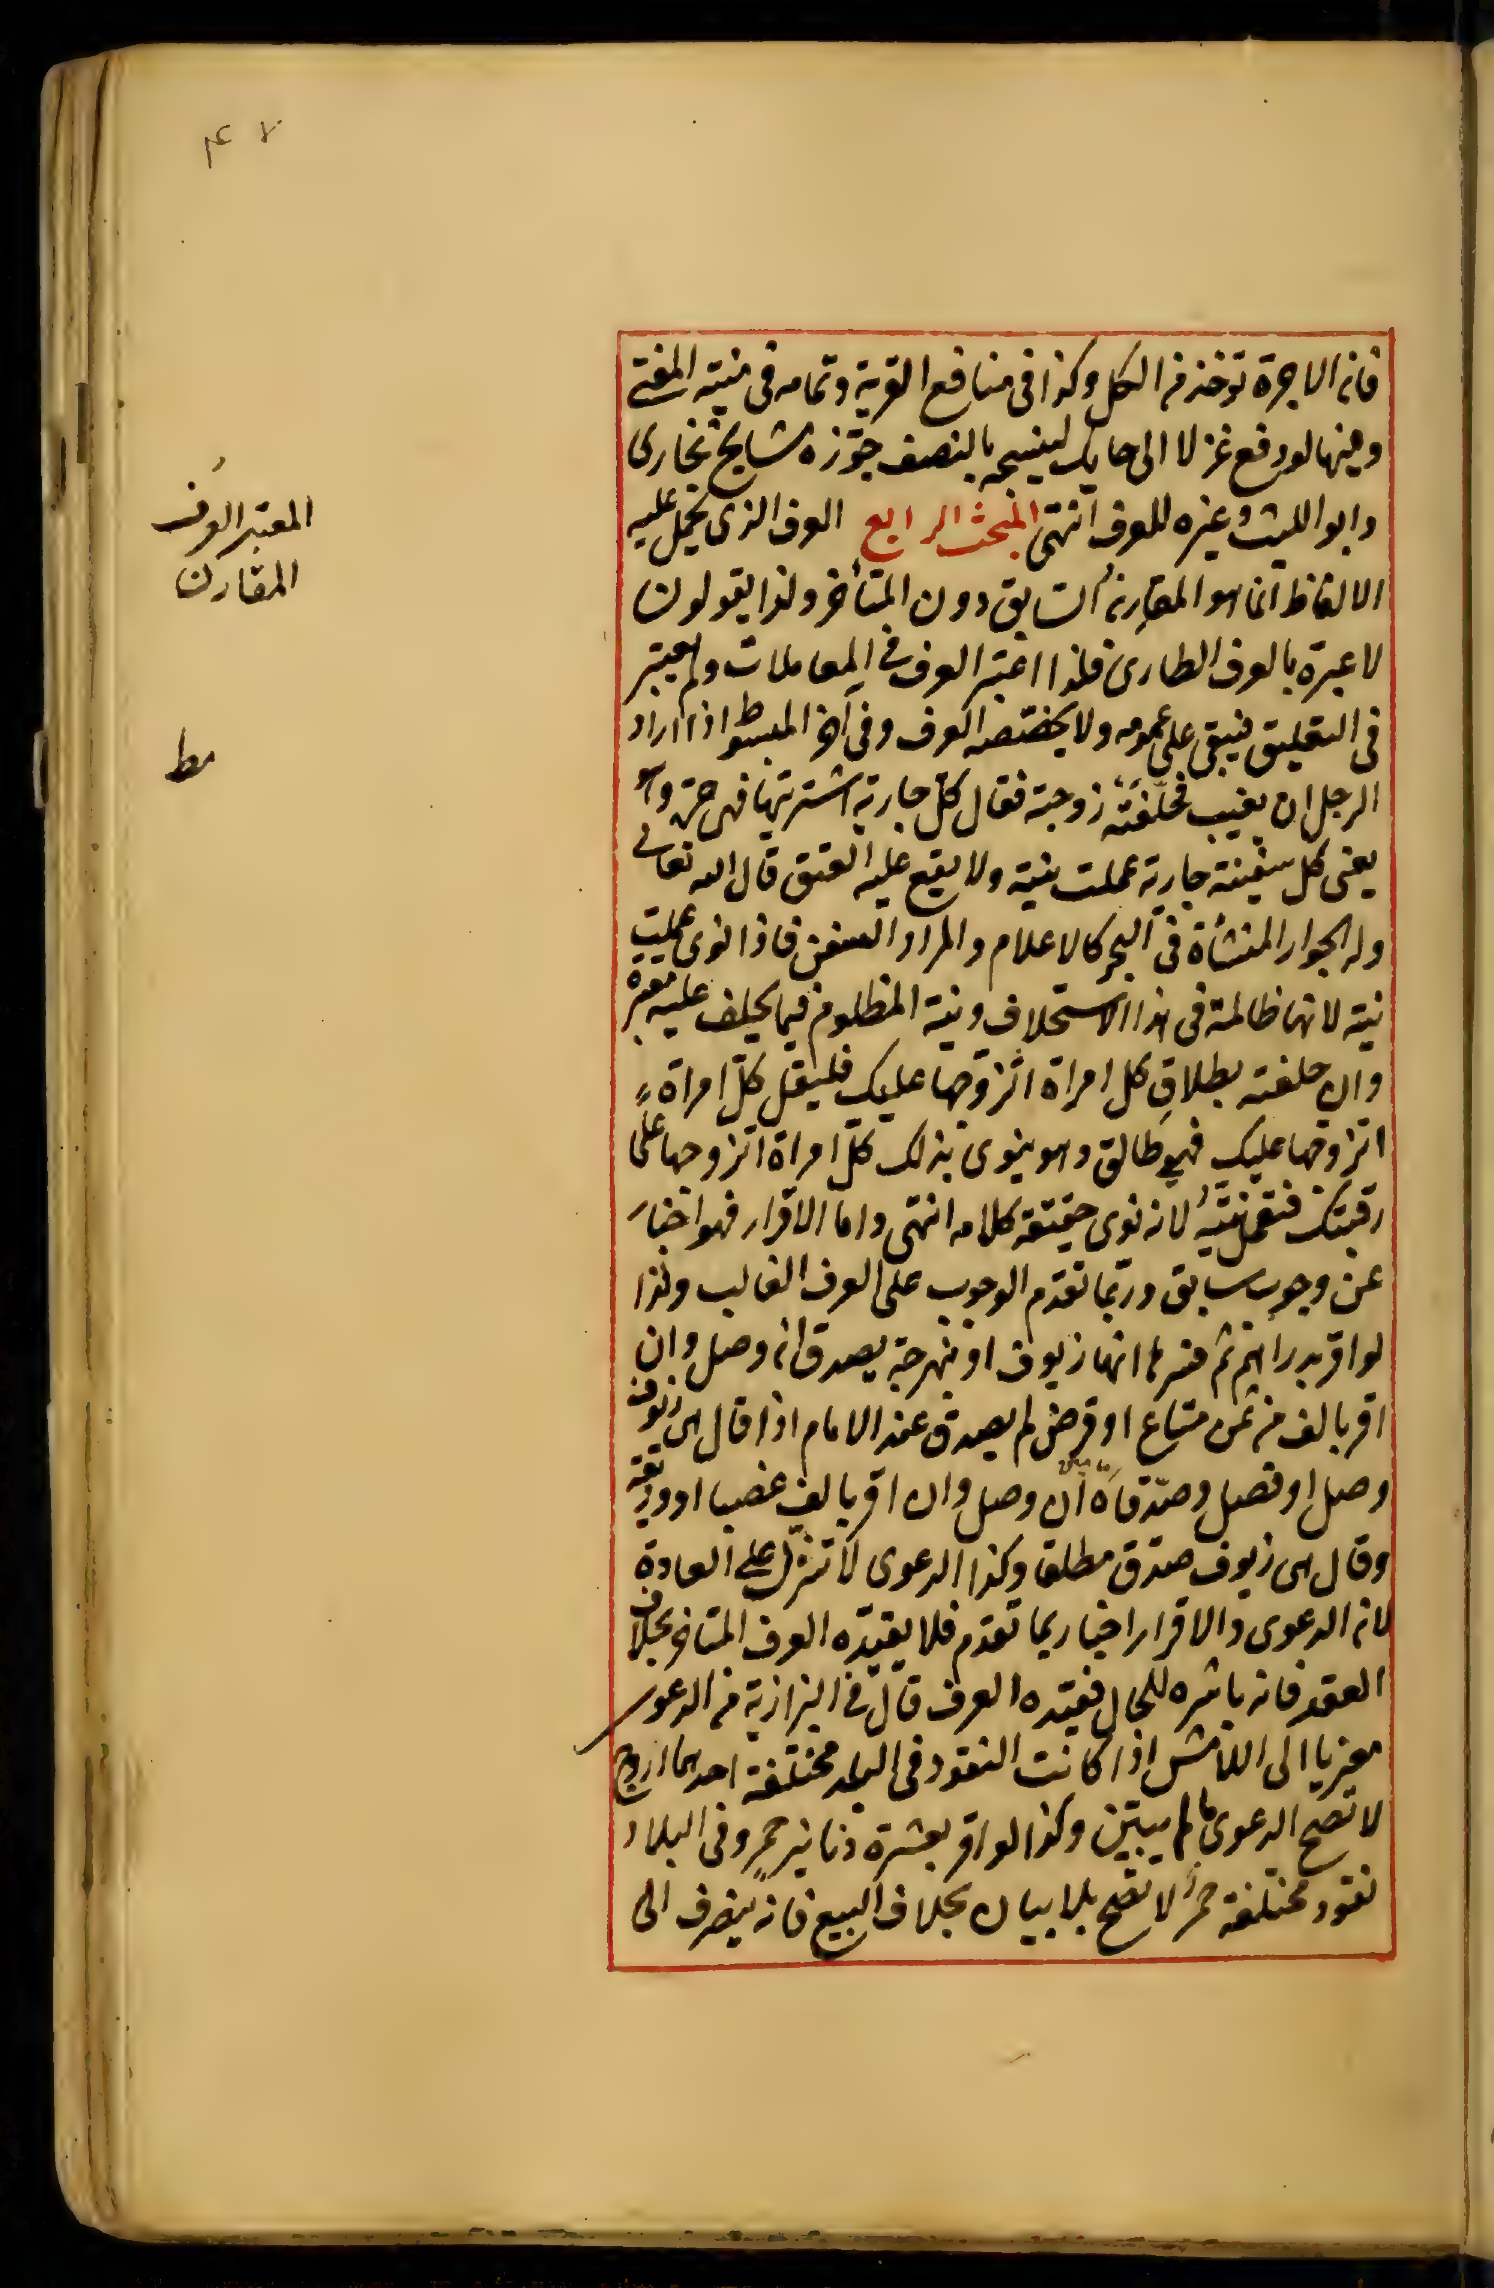 ٤٧
فان الاجرة تؤخذ من الكل وكذا في منافع القرية وتمامه في منية المفتي
وفيها لو دفع غزلا الى حايك لينسجه بالنصف جوّزه مشايخ بخارى
وابو الليث وغيره للعرف انتهى المبحث الرابع العرف الذي يحمل عليه
الالفاظ انما هو المقارن السابق دون المتأخر ولذا يقولون
لا عبرة بالعرف الطارئ فلذا اعتبر العرف في المعاملات ولم يعتبر
في التعليق فيبقى على عمومه ولا يخصّصه العرف وفي آخر المبسوط اذا اراد
الرجل ان يغيب فحلّفته زوجته فقال كلّ جارية اشتريتها فهي حرّة وهو
يعنى كل سفينة جارية عملت نيته ولا يقع عليه العتق قال الله تعالى
وله الجوار المنشأة في البحر كالاعلام والمراد السفن فاذا نوى عملت
نيته لانها ظالمة في هذا الاستحلاف ونية المظلوم فيما يحلف عليه معتبرة
وان حلفته بطلاق كل امراة اتزوّجها عليك فليقل كلّ امراة
اتزوّجها عليك فهي طالق وهو ينوى بذلك كلّ امراة اتزوجها على
رقبتك فتعمل نيّته لانه نوى حقيقة كلامه انتهى واما الاقرار فهو اخبار
عن وجوب سابق وربّما تقدم الوجوب على العرف الغالب ولذا
لو اقر بدراهم ثم فسرها انها زيوف او بنهرجة يصدق ان وصل وان
اقر بالف من ثمن متاع او قرض لم يصدق عند الامام اذا قال هي زيوف
وصل او فصل وصدّقاه ان وصل وان اقر بالف غصبا او وديعة
وقال هي زيوف صدّق مطلقا وكذا الدعوى لا تنزّل على العادة
لان الدعوى والاقرار اخبار بما تقدّم فلا يقيّده العرف المتاخر بخلاف
العقد فانه باشره للحال فقيّده العرف قال في البزازية من الدعوى
معزيا الى اللامشى اذا كانت النقود في البلد مختلفة احدهما اروج
لا تصح الدعوى ما لم يبيّن وكذا لو اقر بعشرة دنانير حمر وفي البلاد
نقود مختلفة حمر لا تصح بلا بيان بخلاف البيع فانه ينصرف الى
المعتبر العرف
المقارن
مط